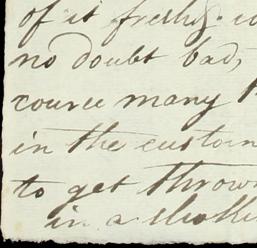 of it freshly. co
no doubt bad,
course many
in the custom
to get thrown
in a shelte